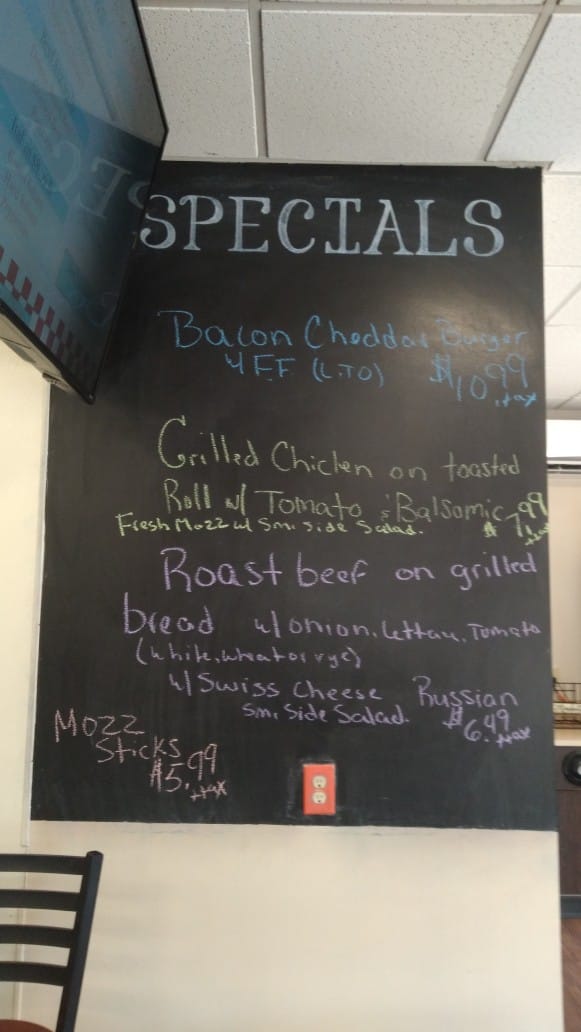 SPECIALS
Bacon Cheddar Burger
w FF (LTO) $10.99 +tax
Grilled Chicken on toasted
Roll w/ Tomato & Balsamic
Fresh Mozz w/ Sm. Side Salad. $7.99 +tax
Roast beef on grilled
bread w/ onion, Lettau, Tomato
(white, wheat or rye)
w/ Swiss Cheese Russian
Sm. Side Salad. $6.49 +tax
Mozz
Sticks
$5.99
+tax